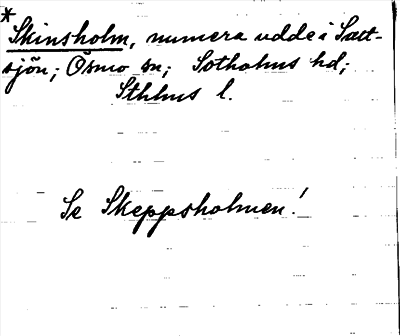 *
Skinsholm, numera udde i Sätt-
sjön; Ösmo sn; Sotholms hd;
Sthlms l.
Se Skeppsholmen!